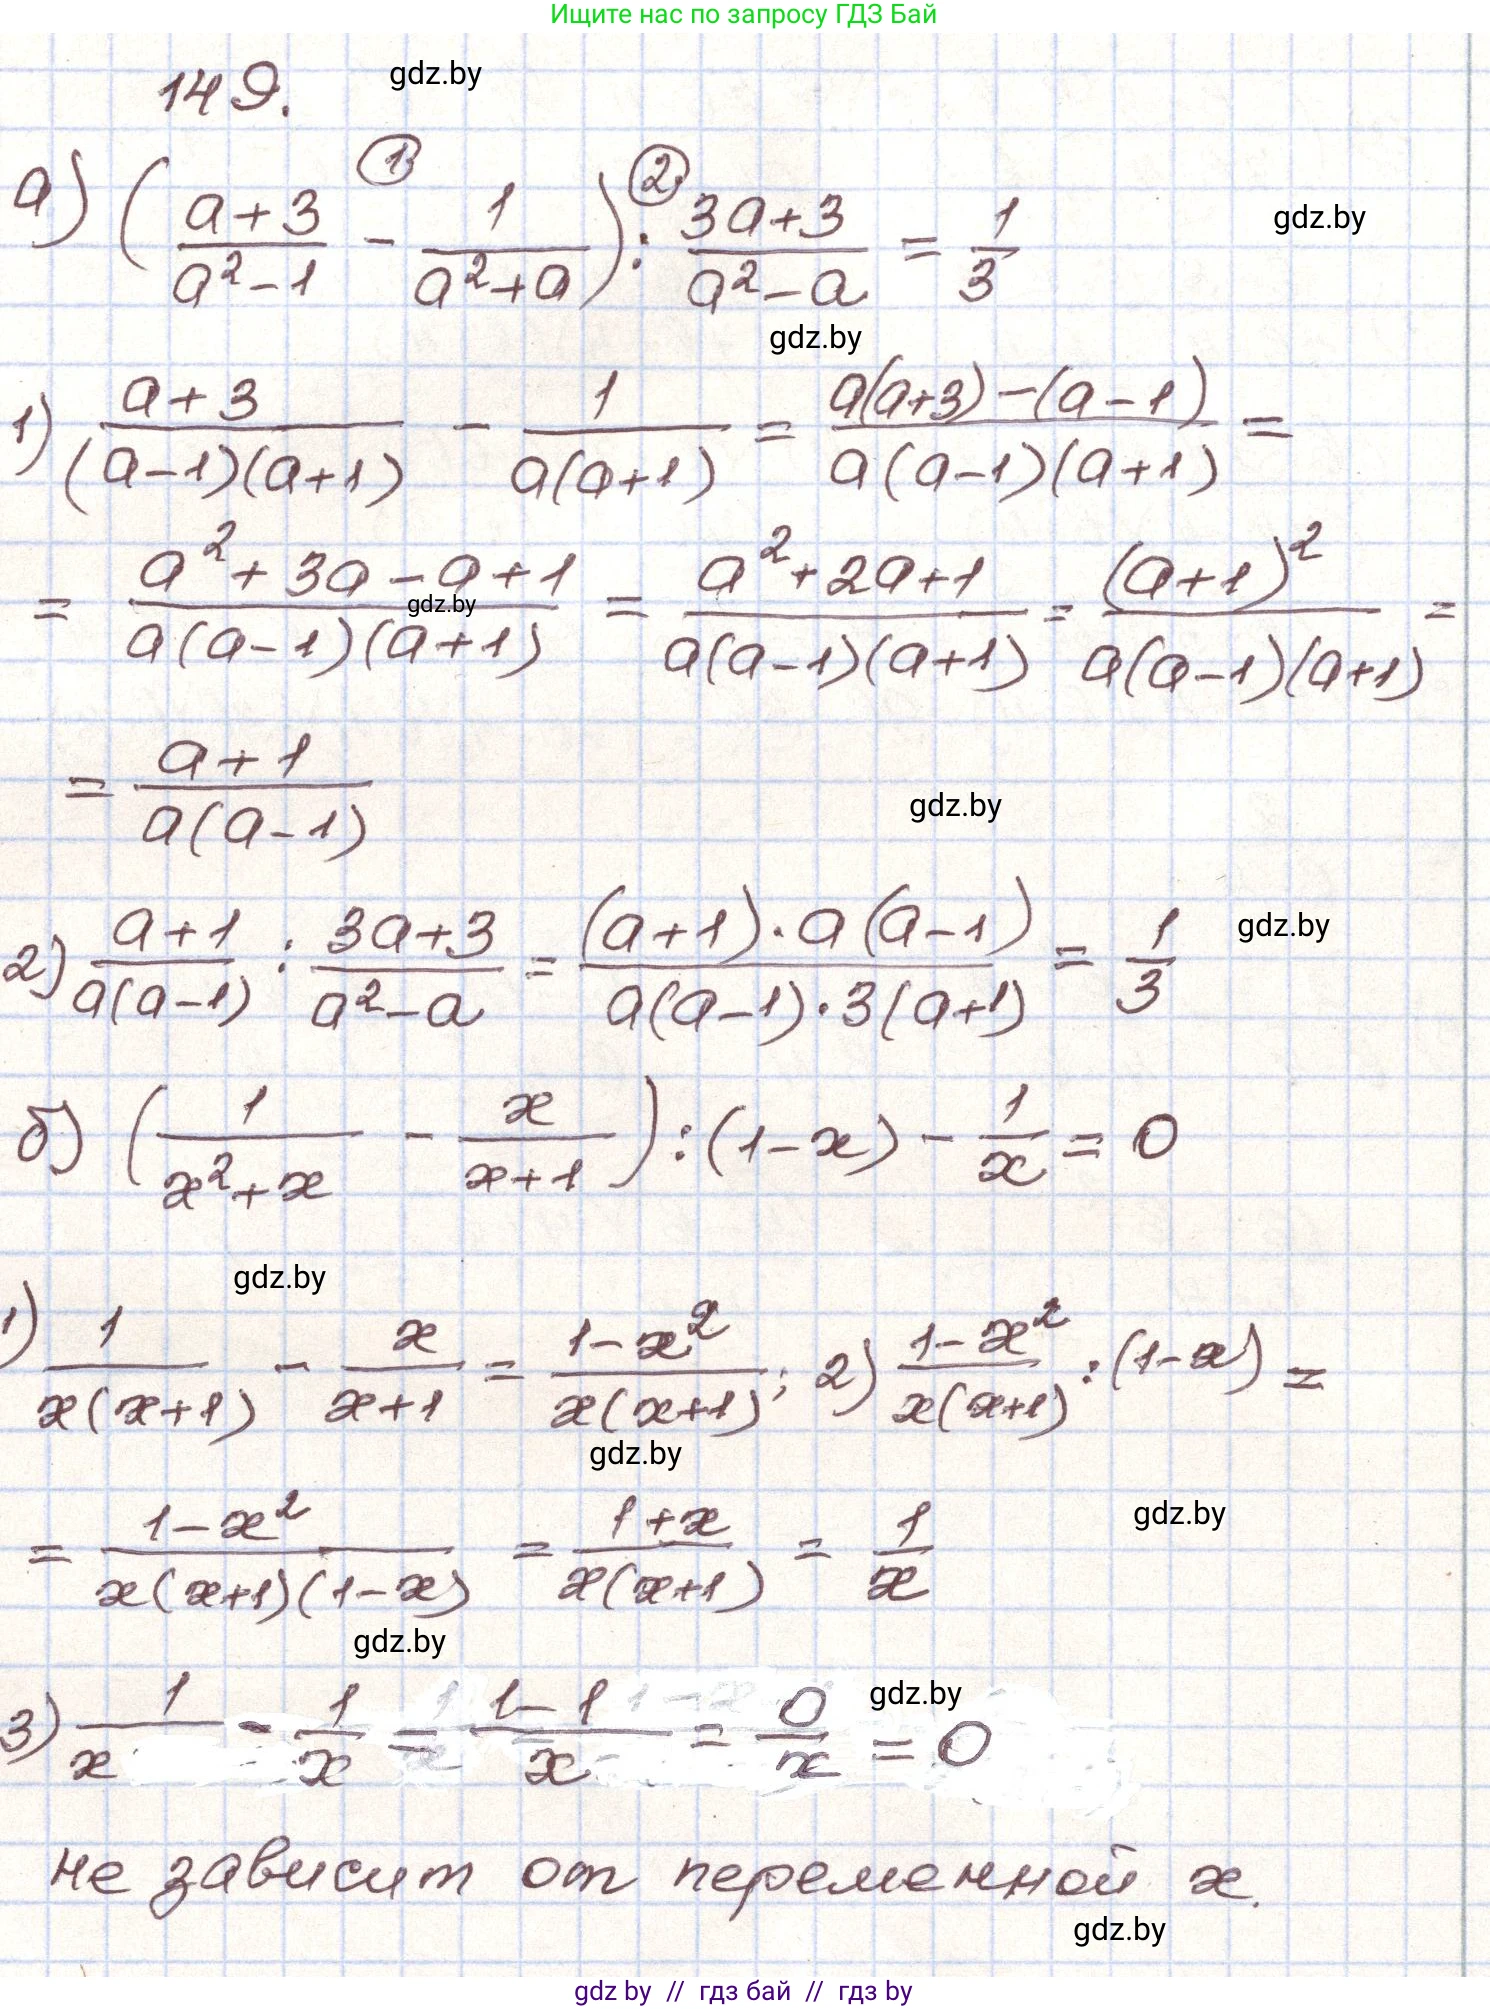 Ищите нас по запросу ГДЗ Бай
149. gdz.by
а) ((a+3)/(a²-1) - 1/(a²+a)) : (3a+3)/(a²-a) = 1/3 gdz.by
① ②
gdz.by
1) (a+3)/((a-1)(a+1)) - 1/(a(a+1)) = (a(a+3)-(a-1))/(a(a-1)(a+1)) =
= (a²+3a-a+1)/(a(a-1)(a+1)) = (a²+2a+1)/(a(a-1)(a+1)) = (a+1)²/(a(a-1)(a+1)) =
gdz.by
= (a+1)/(a(a-1)) gdz.by
2) (a+1)/(a(a-1)) : (3a+3)/(a²-a) = ((a+1)·a(a-1))/(a(a-1)·3(a+1)) = 1/3 gdz.by
б) (1/(x²+x) - x/(x+1)) : (1-x) - 1/x = 0
gdz.by
1) 1/(x(x+1)) - x/(x+1) = (1-x²)/(x(x+1)); 2) (1-x²)/(x(x+1)) : (1-x) =
gdz.by
= (1-x²)/(x(x+1)(1-x)) = (1+x)/(x(x+1)) = 1/x gdz.by
gdz.by
3) 1/x - 1/x = (1-1)/x = 0/x = 0 gdz.by
не зависит от переменной x.
gdz.by
gdz by // гдз бай // гдз by